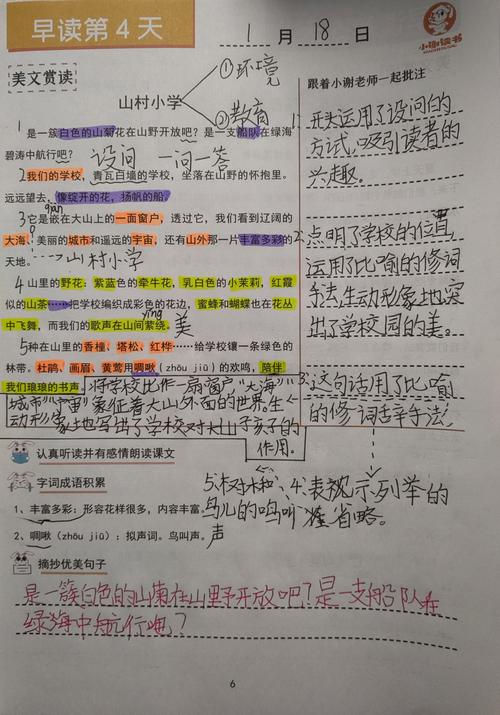 早读第 4 天
1月18日
小谢读书
美文赏读
①环境
②教育
山村小学
跟着小谢老师一起批注
1是一簇白色的山菊花在山野开放吧？是一支船队在绿海
碧涛中航行吧？ 设问 一问一答
2我们的学校，青瓦白墙的学校，坐落在山野的怀抱里。
远远望去，像绽开的花，扬帆的船。
qiàn
3它是嵌在大山上的一面窗户，透过它，我们看到辽阔的
大海、美丽的城市和遥远的宇宙，还有山外那一片丰富多彩的
天地。 山村小学
4山里的野花：紫蓝色的牵牛花，乳白色的小茉莉，红霞
似的山茶……把学校编织成彩色的花边，蜜蜂和蝴蝶也在花丛
中飞舞，而我们的歌声在山间萦绕。 美
yíng
5种在山里的香橦、塔松、红桦……给学校镶一条绿色的
林带。杜鹃、画眉、黄莺用啁啾（zhōu jiū）的欢鸣，陪伴
我们琅琅的书声。 将学校比作一扇窗户，“大海”
城市”“宇宙”象征着大山外面的世界。生
动形象地写出了学校对大山子孩子的
作用。
1.开头运用了设问的
方式，吸引读者的
兴趣。
2.点明了学校的位置，
运用了比喻的修词
手法，生动形象地突
出了学校园的美。
3.这句话用了比喻
的修词辛手法！
认真听读并有感情朗读课文
字词成语积累
1、丰富多彩：形容花样很多，内容丰富。
2、啁啾（zhōu jiū）：拟声词。鸟叫声。
4.表示列举的
省略。
鸟儿的鸣叫
声
摘抄优美句子
是一簇白色的山菊在山野开放吧？是一支船队在
绿海中航行吧？
6